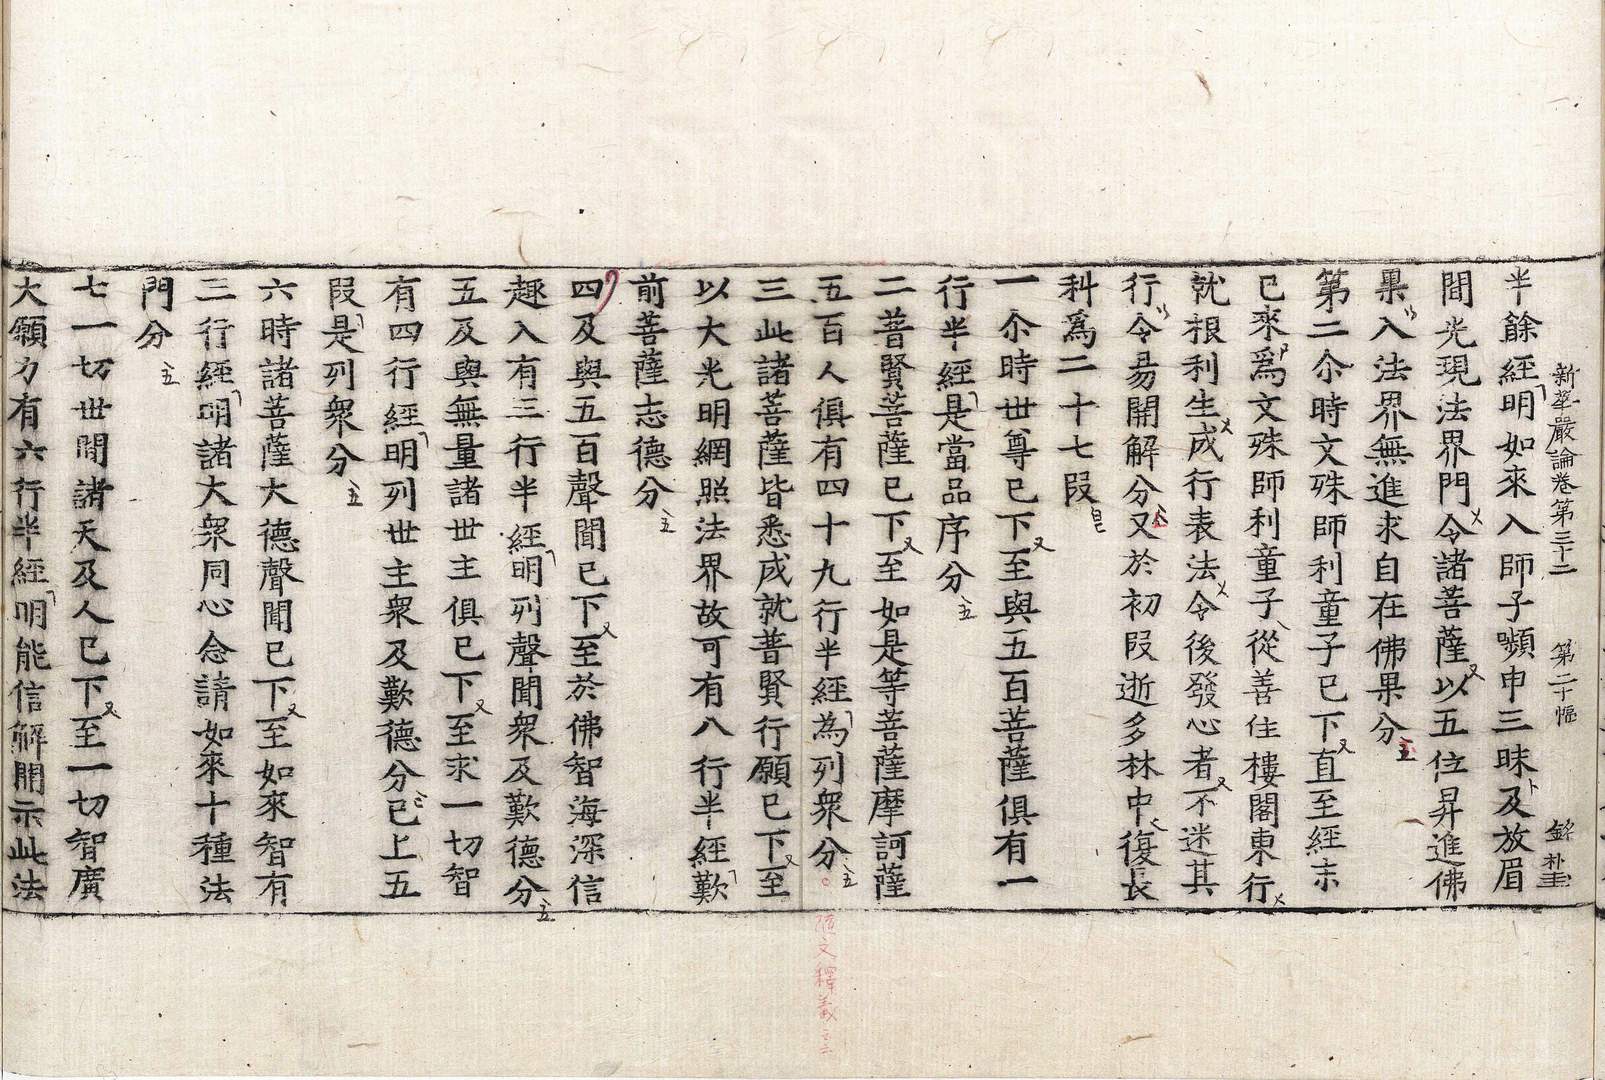 新華嚴論卷第三十二 第二十幅
半餘經明如來入師子嚬申三昧及放眉
間光現法界門令諸菩薩以五位昇進佛
果入法界無進求自在佛果分
第二尒時文殊師利童子已下直至經末
已來爲文殊師利童子從善住樓閣東行
就根利生成行表法令後發心者不迷其
行令易開解分又於初段逝多林中復長
科爲二十七段
一尒時世尊已下至與五百菩薩俱有一
行半經是當品序分
二普賢菩薩已下至如是等菩薩摩訶薩
五百人俱有四十九行半經為列衆分
三此諸菩薩皆悉成就普賢行願已下至
以大光明網照法界故可有八行半經歎
前菩薩志德分
四及與五百聲聞已下至於佛智海深信
趣入有三行半經明列聲聞衆及歎德分
五及與無量諸世主俱已下至求一切智
有四行經明列世主衆及歎德分已上五
段是列衆分
六時諸菩薩大德聲聞已下至如來智有
三行經明諸大衆同心念請如來十種法
門分
七一切世間諸天及人已下至一切智廣
大願力有六行半經明能信解開示此法